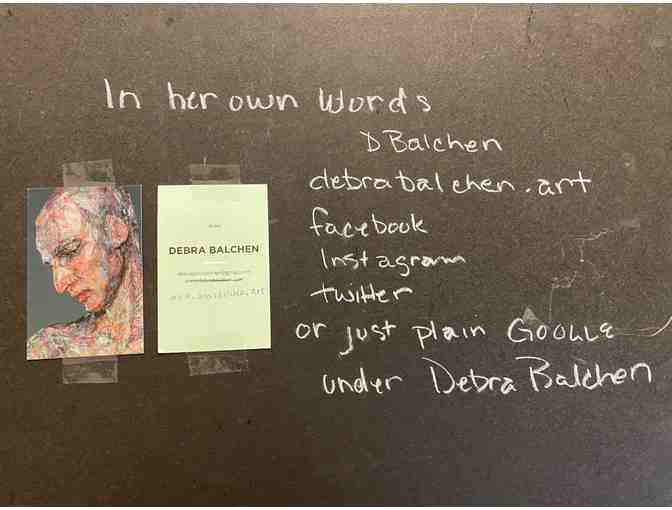 In her own words
D Balchen
debrabalchen.art
facebook
Instagram
twitter
or just plain GOOGLE
under Debra Balchen
DEBRA BALCHEN